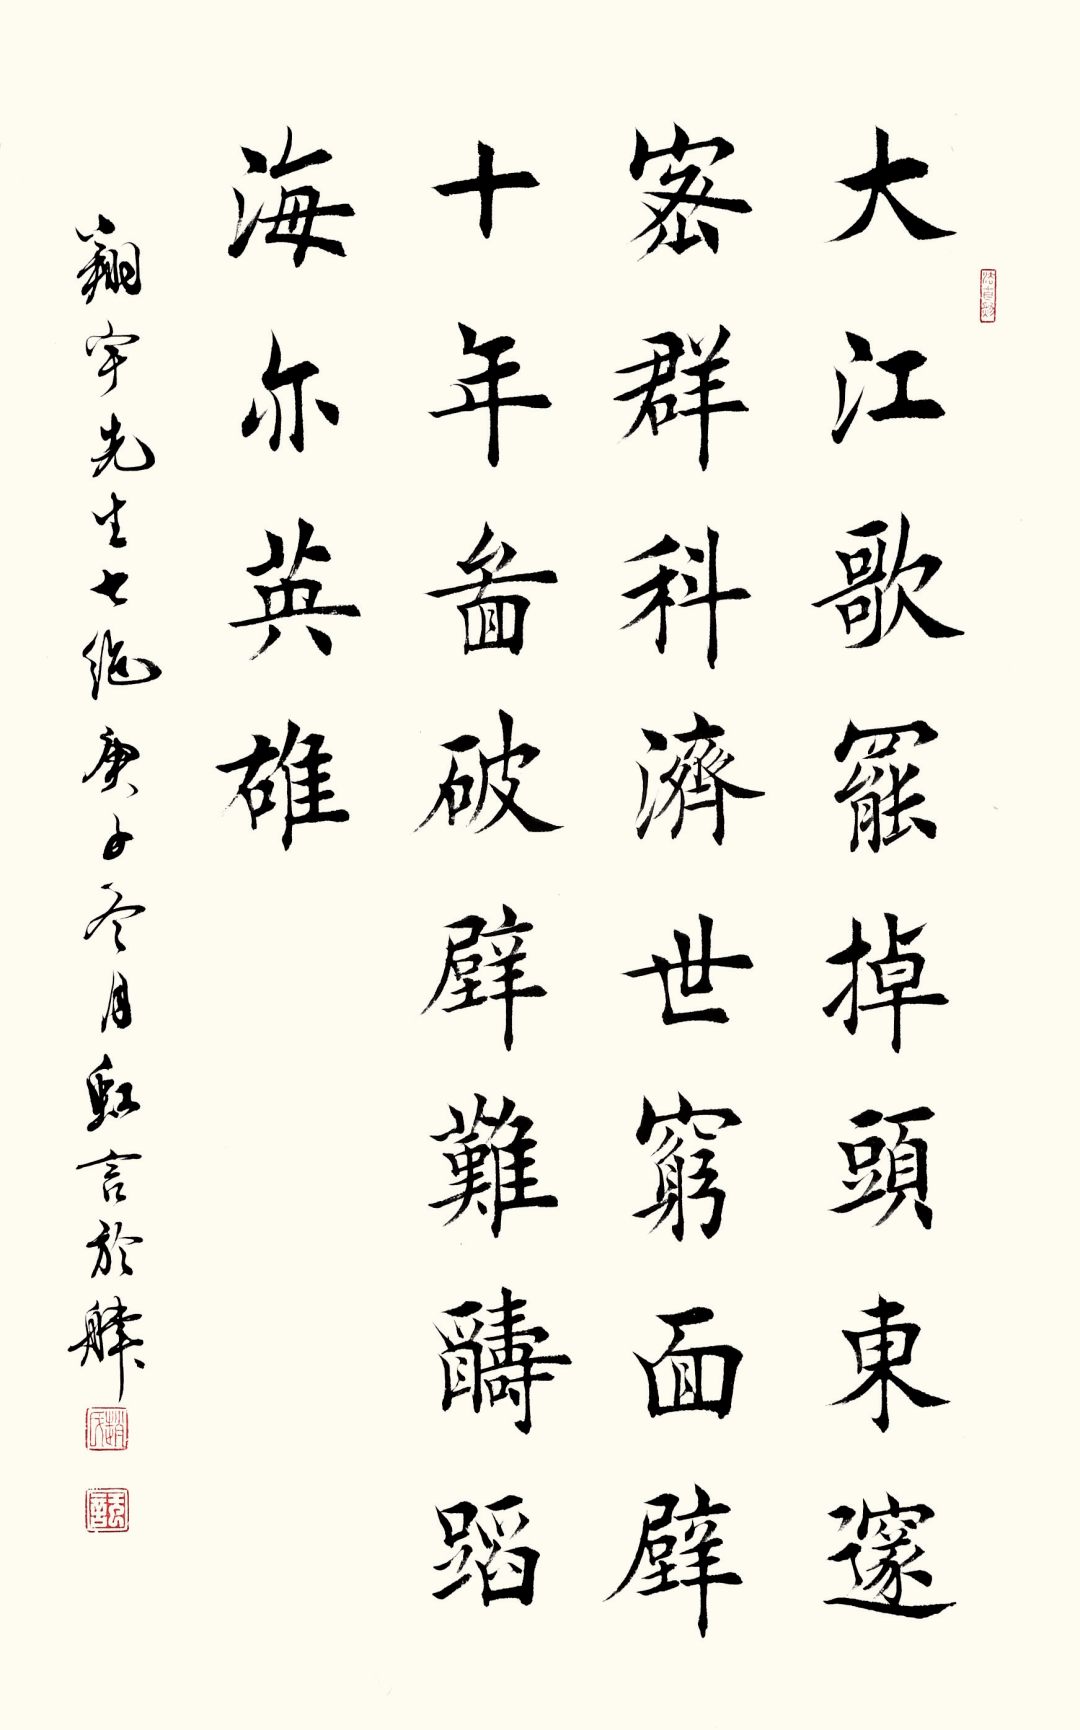 大江歌罷掉頭東邃
密群科濟世窮面壁
十年啚破壁難酬蹈
海亦英雄
翔宇先生七絕庚子冬月虹言於